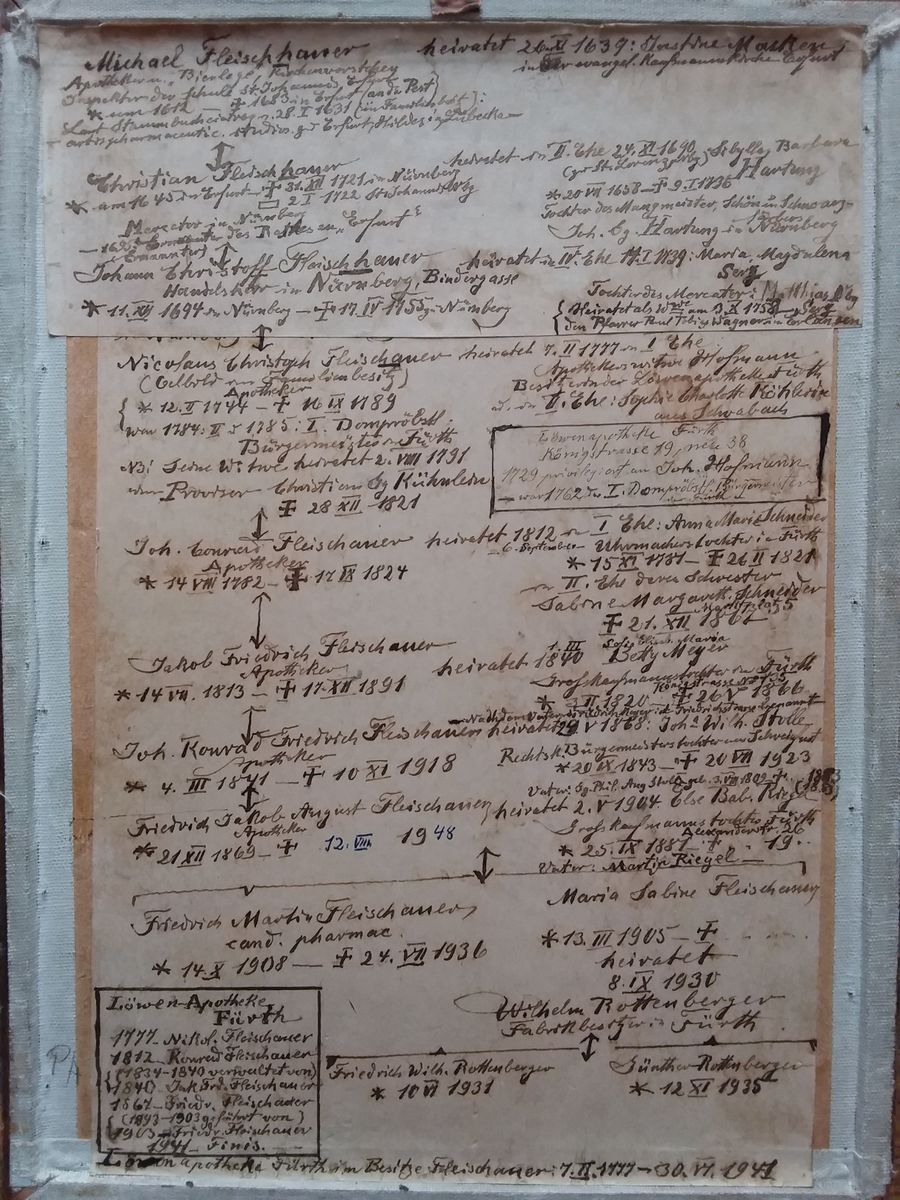 Michael Fleischhauer heiratet 26.XI 1639: Justine Marken
Apotheker u. Bierlegel, Kirchenvorsteher in der evangel. Kaufmannskirche Erfurt
Inspektor der Schule St. Johannis Erfurt
* um 1612 — † 1683 in Erfurt (an der Pest)
Laut Stammbucheintrag v. 28.I 1631 (im Familienbes.):
artis pharmaceutic. studios. zu Erfurt, Hildez in Lübecka
Christian Fleischhauer heiratet in II. Ehe 24.XI 1690 Sibylla, Barbara
(zu St. Lorenz, Nbg) Hartung
* am 1645 in Erfurt — † 31.XII 1721 in Nürnberg * 20 VII 1658 — † 9.I 1736
2 I 1722 St. Johann Nbg Tochter des Mangmeister, Schön in Schwarz-
Mercator in Nürnberg färbers
— 1695 Ernannter des Rates aus "Erfurt" Joh. Cg. Hartung in Nürnberg
(Ernannter)
Johann Christoff Fleischhauer heiratet in IV. Ehe 14.I 1739: Maria, Magdalena
Handelsherr in Nürnberg, Bindergasse Serz
* 11.XII 1694 in Nürnberg — † 17.IV 1755 zu Nürnberg Tochter des Mercator:
{ Heiratet als Wwe am 3.X 1758
den Pfarrer Paul Tobias Wagner in Erlangen
Nicolaus Christoph Fleischauer heiratet 7.II 1777 in I Ehe
(Oelbild im Familienbesitz) Apothekerswitwe Hofmann
Apotheker Besitzerin der Löwenapotheke Fürth
* 12.II 1744 — † 16 IX 1789 u. in II. Ehe: Sophie Charlotte Köhlerin
war 1784: II u. 1785: I. Dompröbstl. aus Schwabach
Bürgermeister in Fürth
NB: Seine Witwe heiratet 2.VIII 1791
den Provisor Christian Cg Kühnlein
† 28 XII 1821
Löwenapotheke Fürth
Königstrasse 19, neu 38
1729 privilegiert an Joh. Hofmann
war 1762 der I. Dompröbstl. Bürgermeister
Joh. Conrad Fleischauer heiratet 1812 in I Ehe: Anna Maria Schneider
Apotheker 6. September Uhrmacherstochter in Fürth
* 14 VIII 1782 — † 17 IX 1824 * 15 XI 1781 — † 26 II 1821
in II. Ehe deren Schwester
Sabine Margareth. Schneider
Marktplatz 5
† 21. XII 1862
Jakob Friedrich Fleischauer heiratet 1.III 1840 Sofie Elisab. Maria
Apotheker Betty Meyer
* 14 VII. 1813 — † 17. XII 1891 Grosskaufmannstochter in Fürth
Königstrasse No 135
* 3 II. 1820 † 26 V 1866
— Nach dem Vater Friedrich Meyer i.d. Friedrichstrasse benannt
Joh. Konrad Friedrich Fleischauer heiratet 29 V 1868: Joha Wilh. Stolle
Apotheker Rechtsk. Bürgermeisterstochter aus Schweinfurt
* 4. III 1841 — † 10 XI 1918 * 20 IX 1843 — † 20 VII 1923
Vater: Cg. Phil. Aug Stolle geb. 3.VII 1809 †
Friedrich Jakob August Fleischauer, heiratet 2.V 1904 Else Bab. Riegel
Apotheker Grosskaufmannstochter Fürth
Alexanderstr. 26
* 21 XII 1869 — † 12. VIII 1948 * 25. IX 1881 — † . . 19..
Vater: Martin Riegel —
Friedrich Martin Fleischauer, Maria Sabine Fleischauer
cand. pharmac.
* 14. X 1908 — † 24. VII 1936 * 13. III 1905 — †
heiratet
8. IX 1930
Wilhelm Rottenberger
Fabrikbesitzer in Fürth
Friedrich Wilh. Rottenberger Günther Rottenberger
* 10 VI 1931 * 12 XI 1935
Löwen-Apotheke
Fürth
1777 Nikol. Fleischauer
1812 Konrad Fleischauer
(1834–1840 verwaltet von)
1840 Jak Frd. Fleischauer
1867 Friedr. Fleischauer
(1893–1903 geführt von)
1903 Friedr. Fleischauer
1941 Finis.
Löwenapotheke Fürth im Besitze Fleischauer: 7.II.1777 — 30.VI.1941